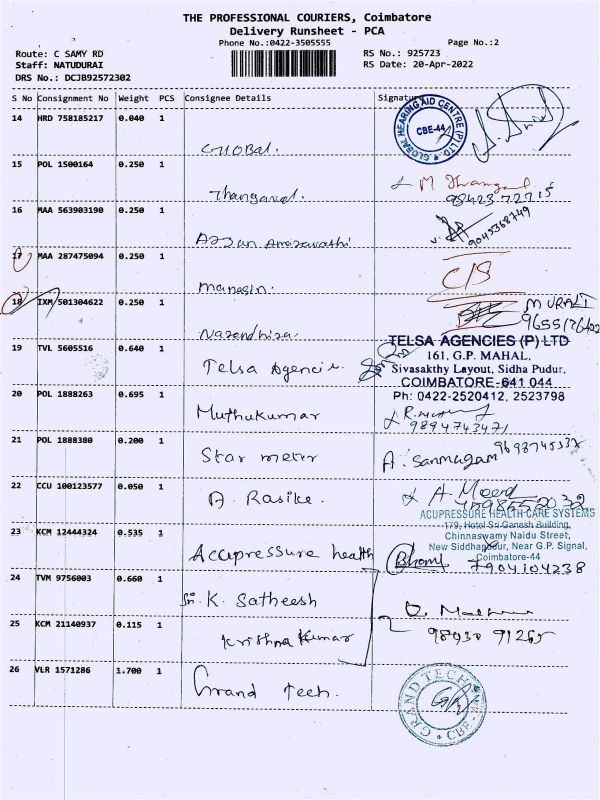 THE PROFESSIONAL COURIERS, Coimbatore
Delivery Runsheet - PCA
Phone No.:0422-3505555
Page No.:2
Route: C SAMY RD
RS No.: 925723
Staff: NATUDURAI
RS Date: 20-Apr-2022
DRS No.: DCJB92572302
S No Consignment No Weight PCS Consignee Details Signature
14 HRD 758185217 0.040 1
GLOBAL HEARING AID CENTRE (P) LTD
CBE-44
Global.
15 POL 1500164 0.250 1
Thangavel. M Thangavel
98423 72715
16 MAA 563903190 0.250 1
9045368749
Arjun Amaravathi
17 MAA 287475094 0.250 1
C/S
Managin.
18 IXM 501304622 0.250 1
MURALI
Narendhira.
19 TVL 5605516 0.640 1
Telsa Agencies
TELSA AGENCIES (P) LTD
161, G.P. MAHAL,
Sivasakthy Layout, Sidha Pudur,
COIMBATORE-641 044
Ph: 0422-2520412, 2523798
20 POL 1888263 0.695 1
Muthukumar
9894743471
21 POL 1888380 0.200 1
Star meter
A. Sanmugam
22 CCU 100123577 0.050 1
A. Rasike.
A. Meera
23 KCM 12444324 0.535 1
Accupressure health
ACUPRESSURE HEALTH CARE SYSTEMS
179, Hotel Sri Ganesh Building,
Chinnaswamy Naidu Street,
New Siddhapudur, Near G.P. Signal,
Coimbatore-44
7904104238
24 TVM 9756003 0.660 1
Sri. K. Satheesh
25 KCM 21140937 0.115 1
Krishna Kumar
98930 91265
26 VLR 1571286 1.700 1
Grand Tech.
GRAND TECH
CBE